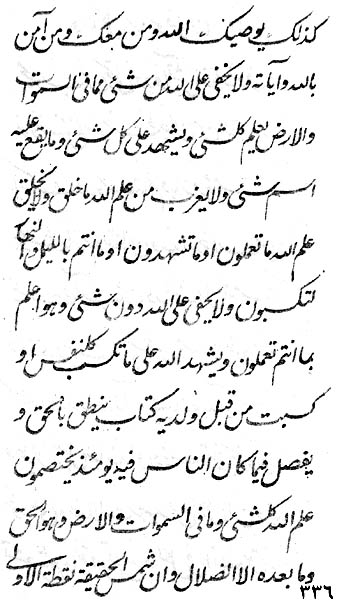 كذلك يوصيك الله ومن معك ومن آمن
بالله وآياته ولا يخفى على الله من شئ مما فى السموات
والارض يعلم كلشئ ويشهد على كل شئ وما يقع عليه
اسم شئ ولا يعزب من علم الله ما خلق ولا يخلق
علم الله ما تعملون او ما تشهدون او ما انتم بالليل والنهار
لتكسبون ولا يخفى على الله دون شئ وهو اعلم
بما انتم تعملون ويشهد الله على ما تكسب كلنفس او
كسبت من قبل ولديه كتاب ينطق بالحق و
يفصل فيما كان الناس فيه يومئذ يختصمون
علم الله كلشئ وما فى السموات والارض وهو الحق
وما بعده الا الضلال وان شمس الحقيقة نقطة الاولى
٣٣٦